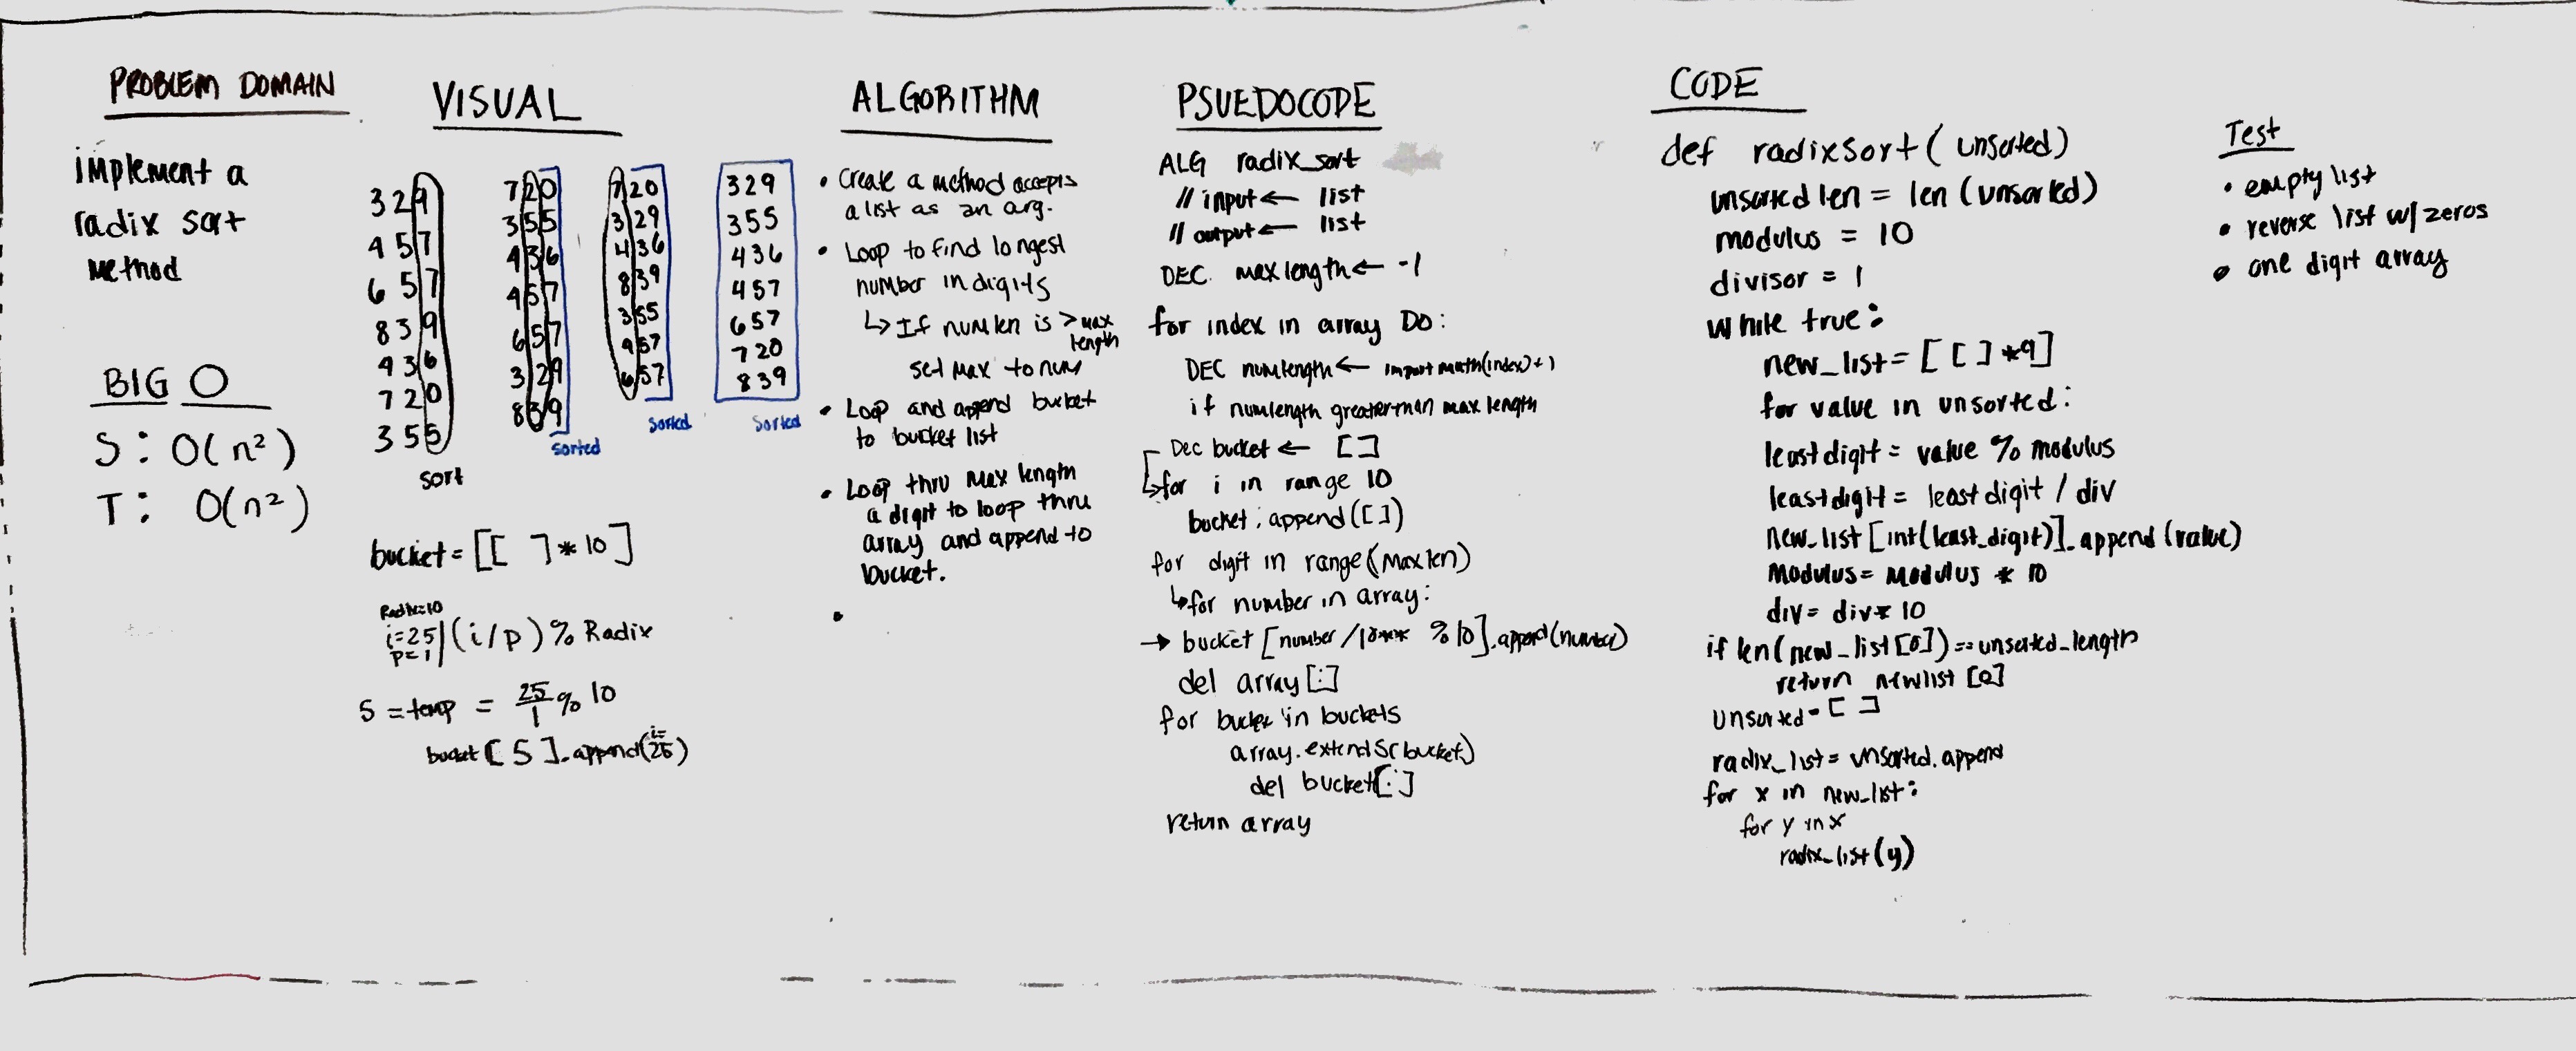 PROBLEM DOMAIN
implement a
radix sort
method
BIG O
S: O(n²)
T: O(n²)
VISUAL
329
457
657
839
436
720
355
sort
720
355
436
457
657
329
839
sorted
720
329
436
839
355
457
657
sorted
329
355
436
457
657
720
839
sorted
bucket = [[ ] * 10]
Radix=10
i=25
p=1
(i/p) % Radix
5 = temp = 25/1 % 10
i=
bucket [5].append(25)
ALGORITHM
• Create a method accepts
a list as an arg.
• Loop to find longest
number in digits
↳ If numlen is > max
length
set max to num
• Loop and append bucket
to bucket list
• Loop thru max length
a digit to loop thru
array and append to
bucket.
•
PSUEDOCODE
ALG radix_sort
// input ← list
// output ← list
DEC max length ← -1
for index in array DO:
DEC numlength ← import math(index)+1
if numlength greater than max length
Dec bucket ← []
↳for i in range 10
bucket.append([])
for digit in range(maxlen)
↳for number in array:
→ bucket [number/10** %10].append(number)
del array[:]
for bucket in buckets
array.extends(bucket)
del bucket[:]
return array
CODE
def radixsort(unsorted)
unsorted len = len(unsorted)
modulus = 10
divisor = 1
while true:
new_list = [[]*9]
for value in unsorted:
least digit = value % modulus
least digit = least digit / div
new_list[int(least_digit)].append(value)
modulus = modulus * 10
div = div * 10
if len(new_list[0]) == unsorted_length
return newlist[0]
unsorted = []
radix_list = unsorted.append
for x in new_list:
for y in x
radix_list(y)
Test
• empty list
• reverse list w/ zeros
• one digit array